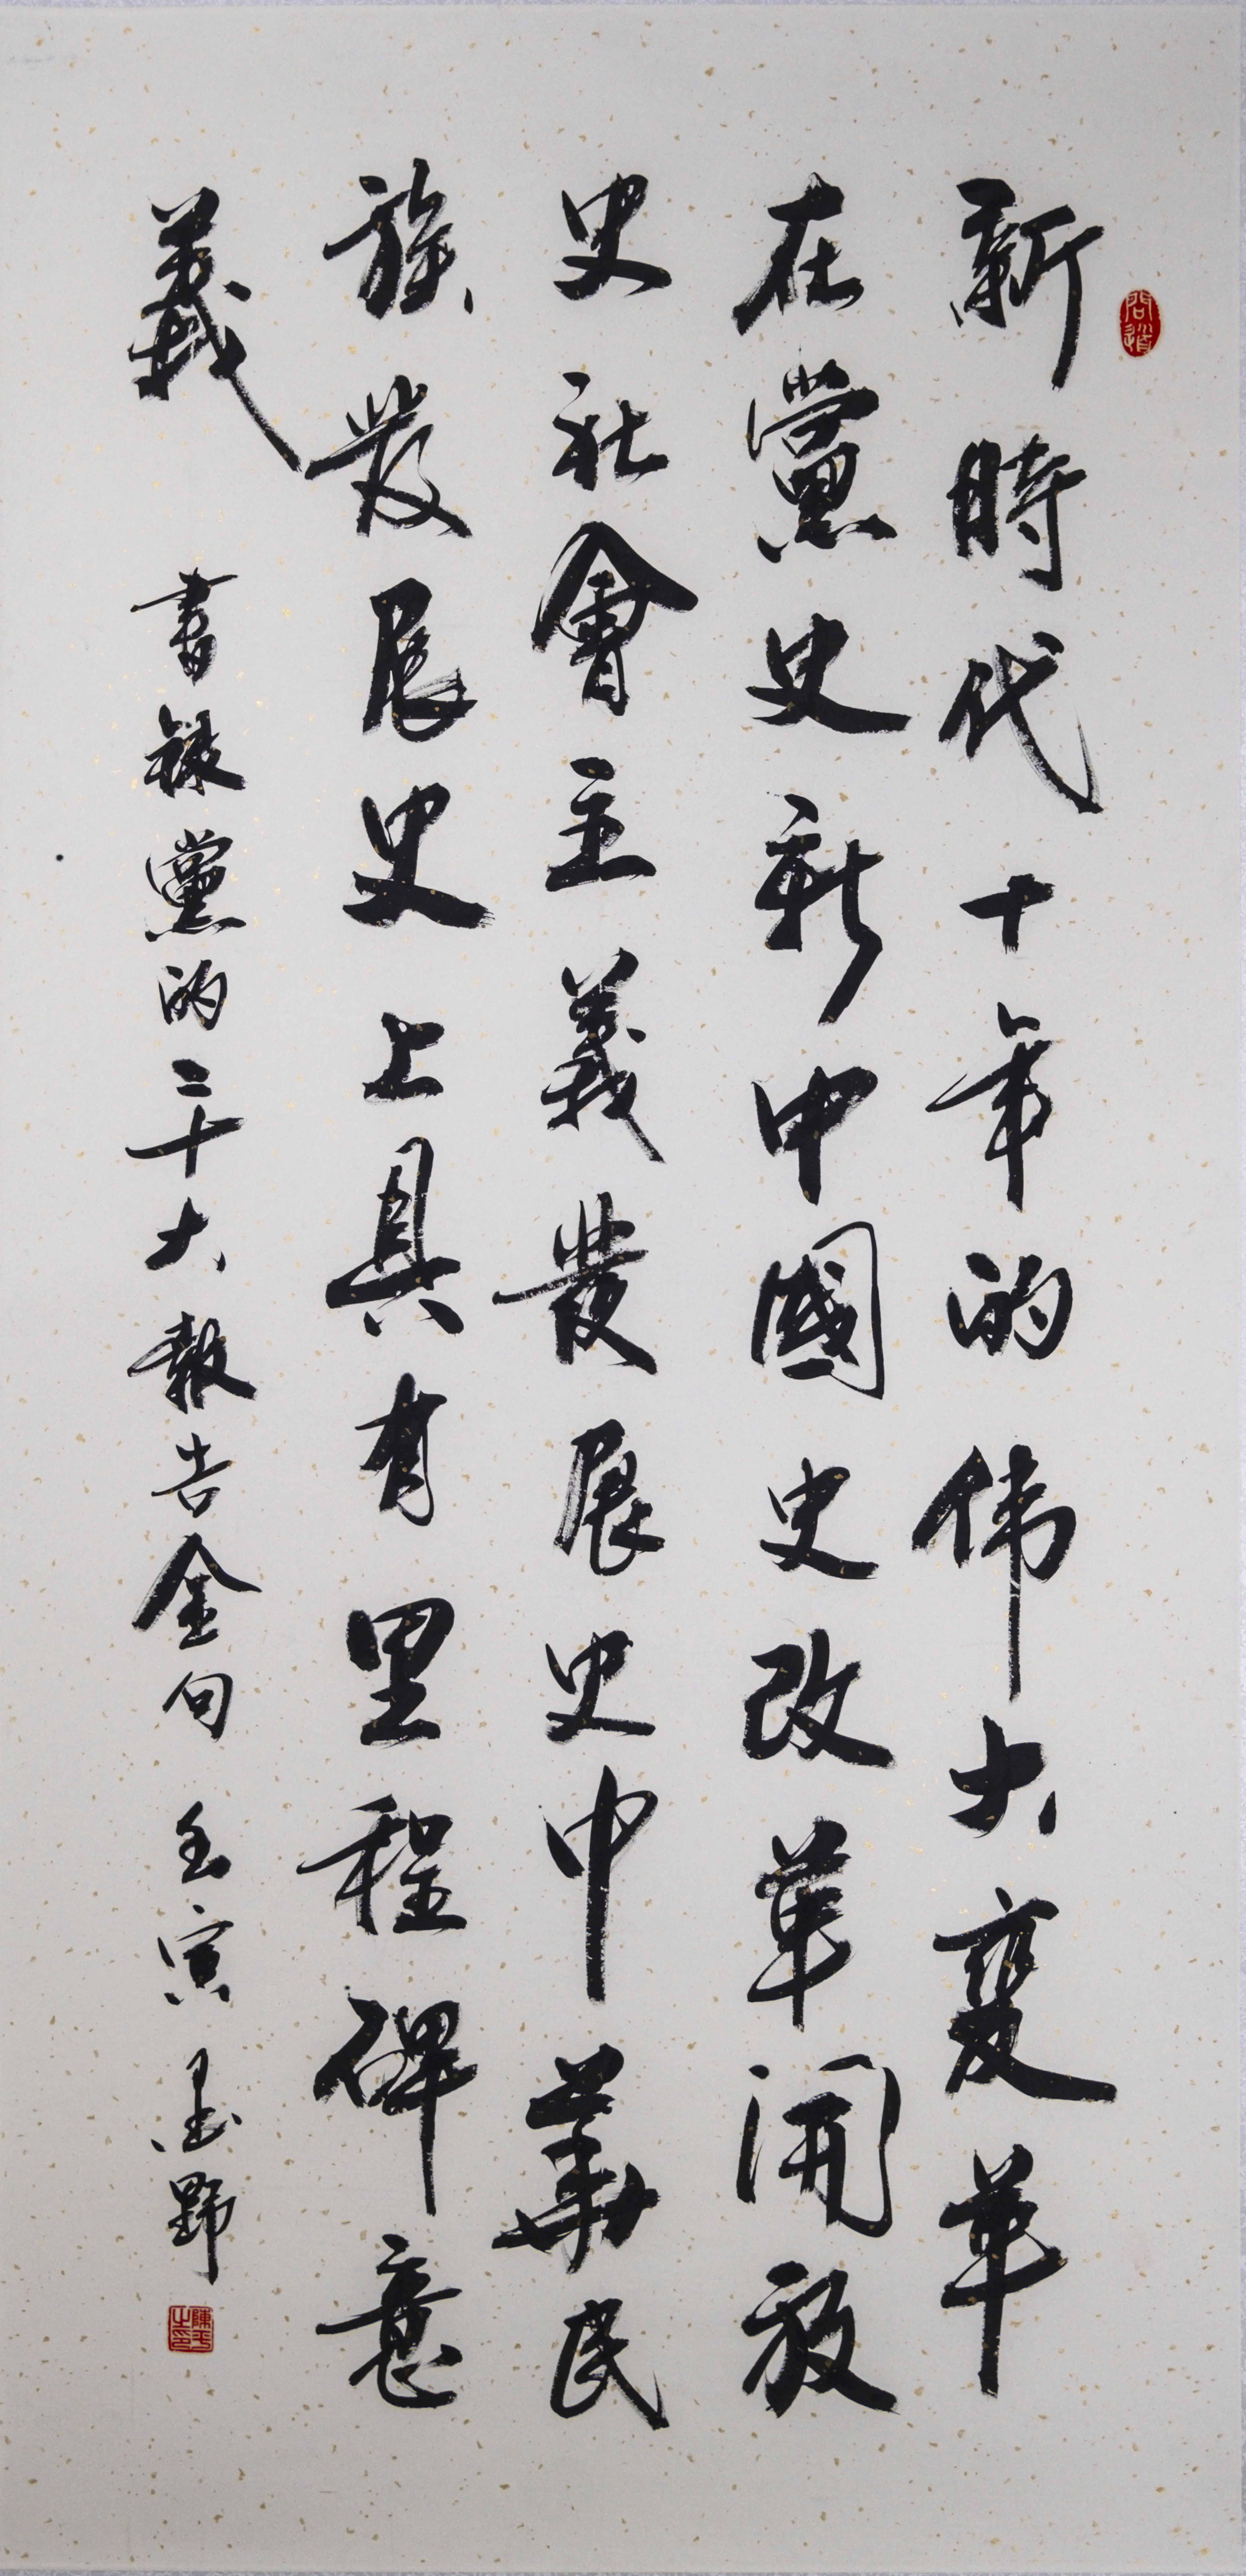 問道
新時代十年的伟大變革
在黨史新中國史改革開放
史社會主義發展史中華民
族發展史上具有里程碑意
義
書録黨的二十大報告金句 壬寅 墨野
陳平之印